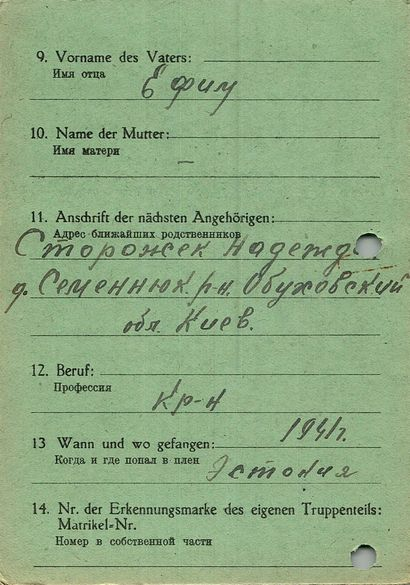 9. Vorname des Vaters:
Имя отца
Ефим
10. Name der Mutter:
Имя матери
—
11. Anschrift der nächsten Angehörigen:
Адрес ближайших родственников
Сторожек Надежд
д. Семеннюк р-н. Обуховский
обл. Киев.
12. Beruf:
Профессия
Кр-н
13 Wann und wo gefangen: 1941г.
Когда и где попал в плен Эстония
14. Nr. der Erkennungsmarke des eigenen Truppenteils:
Matrikel-Nr.
Номер в собственной части